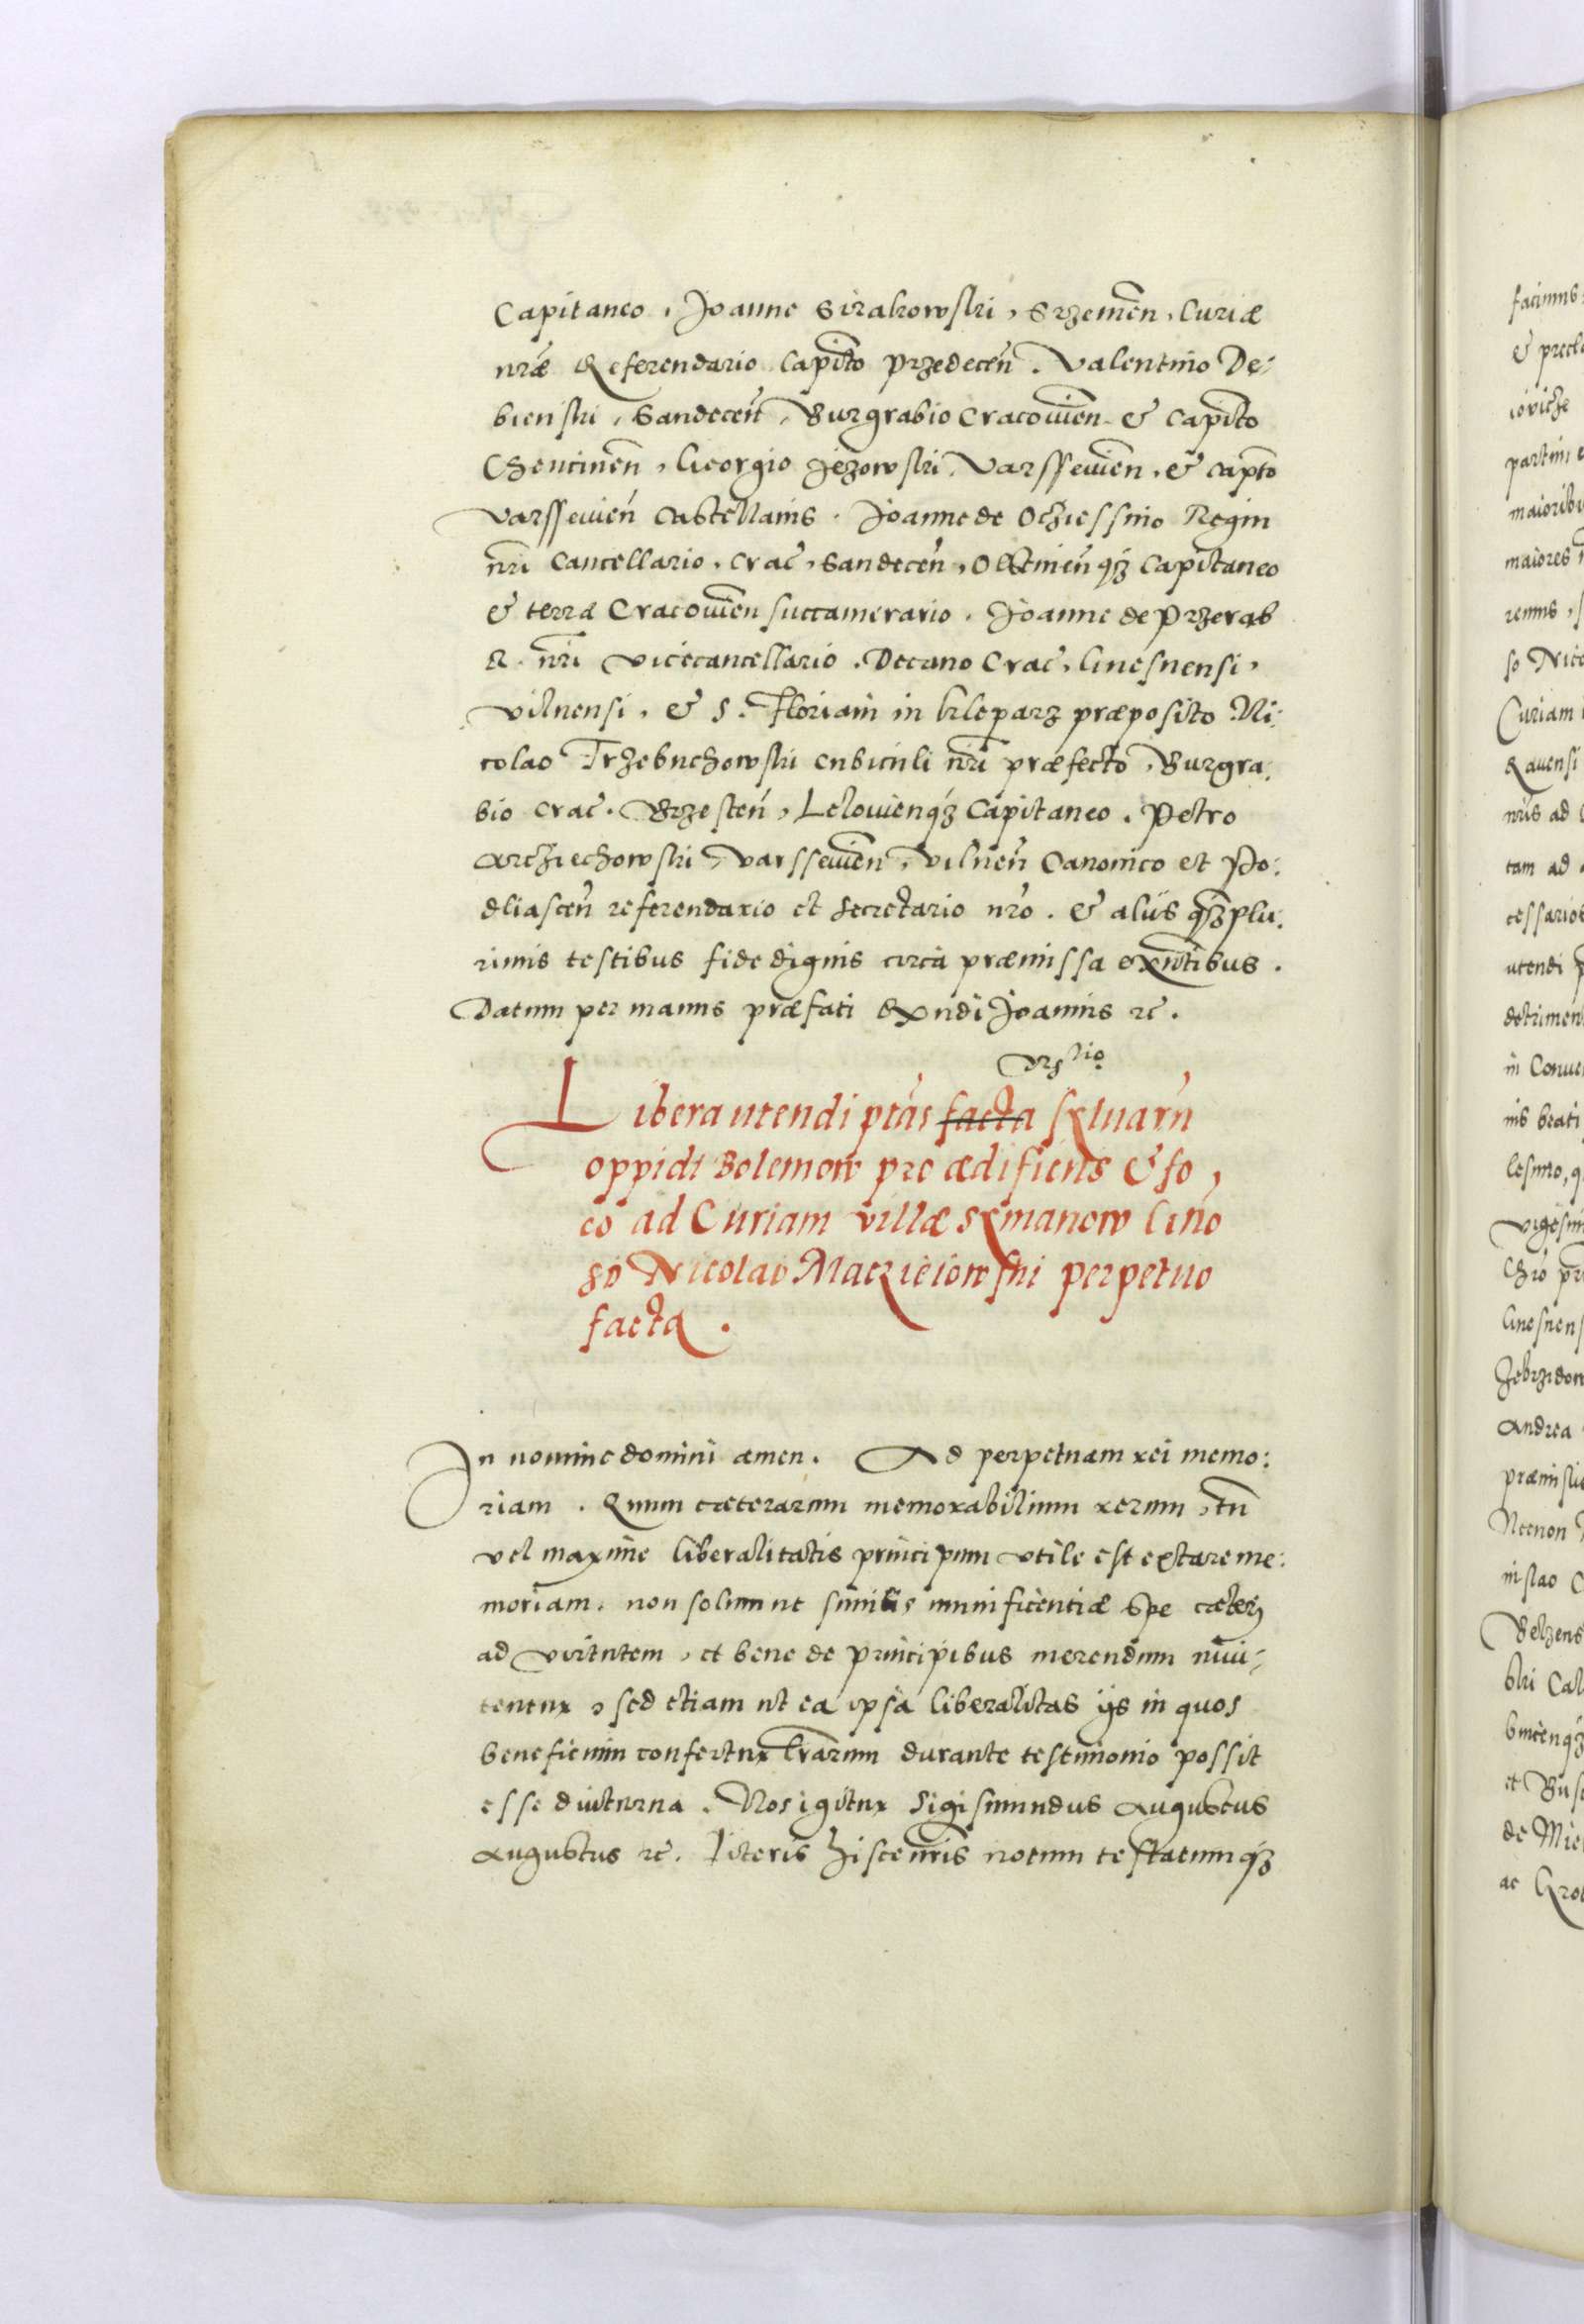 Capitaneo, Joanne Sirakowski, Srzemēn, Curiæ
nr̄æ Referendario Capit̄o Przedecen̄. Valentino De:
bienski, Sandecen̄, Burgrabio Cracouien̄ & Capit̄o
Chencinen̄, Georgio Jezowski Varsseuien̄, & Capit̄o
Varsseuien̄ Castellanis. Joanne de Ocziessino Regni
nr̄i Cancellario, Crac̄, Sandecen̄, Olstinen̄q3 Capitaneo
& terræ Cracouien̄ succamerario. Joanne de Przeręb
R. nr̄i Vicecancellario. Decano Crac̄, Gnesnensi,
Vilnensi, & S. Floriani in Kleparz præposito Ni:
colao Trzebuchowski cubiculi nr̄i præfecto, Burgra:
bio Crac̄. Brzesten̄, Lelouienq3 Capitaneo. Petro
Arcziechowski, Varsseuien̄, Vilnen̄ Canonico et Po:
dliascen̄ referendario et Secretario nr̄o. & aliis q3plu:
rimis testibus fide dignis circa præmissa exn̄tibus.
Datum per manus præfati Rx̄ndi Joannis rc̄.
Libera utendi ptās facta syluarn̄
oppidi Bolemow pro ædificiis & fo,
co ad Curiam villæ Symanow Gn̄o
so Nicolao Maczieiowski perpetuo
facta.
In nomine domini amen. Ad perpetuam rei memo:
riam. Quum cæterarum memorabilium rerum, tn̄
vel maxime liberalitatis principum vtile est extare me:
moriam, non solum ut similis munificentiæ spe cæteri
ad virtutem, et bene de principibus merendum inui:
tentur, sed etiam ut ea ipsa liberalitas ijs in quos
beneficium confertur lr̄arum durante testimonio possit
esse diuturna. Nos igitur Sigismundus Augustus
Augustus rc̄. literis hisce nr̄is notum testatumq3
facimus
& precla
iowicze
partim e
maioribu
maiores
remus, s
so Nico
Curiam
Rauensi
nr̄is ad
tam ad
cessarios
utendi p
detrimen
in Conue
nis beati
lesimo, q
Vigesim
Chr̄o pr̄
Gnesnens
Zebrzidow
Andrea
præmisli
Necnon
nislao C
Belzens
bski Cal
binenq3
et Busc
de Miel
ac Grod